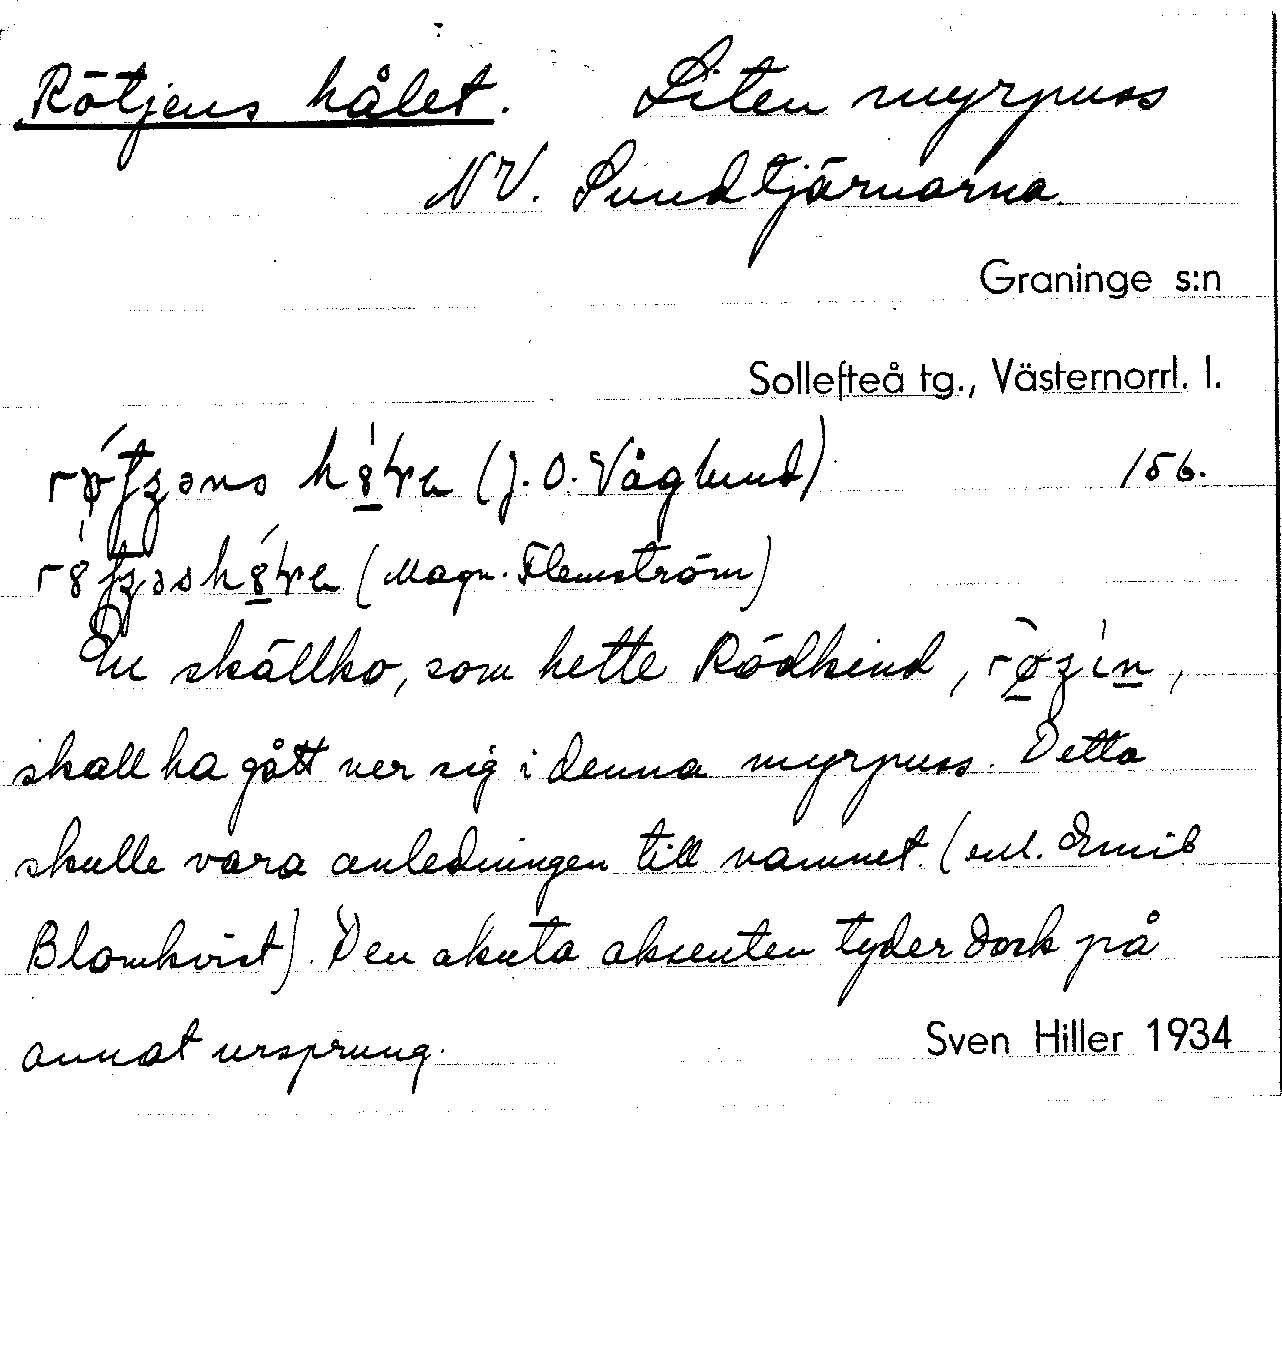 Rötjens hålet. Liten myrpuss
NV. Sundtjärnarna.
Graninge s:n
Sollefteå tg., Västernorrl. l.
(J. O. Våglund) 156.
(Magn. Flemström)
En skällko, som hette Rödkind,
skall ha gått ner sig i denna myrpuss. Detta
skulle vara anledningen till namnet. (enl. Emil
Blomkvist). Den akuta aksenten tyder dock på
annat ursprung.
Sven Hiller 1934